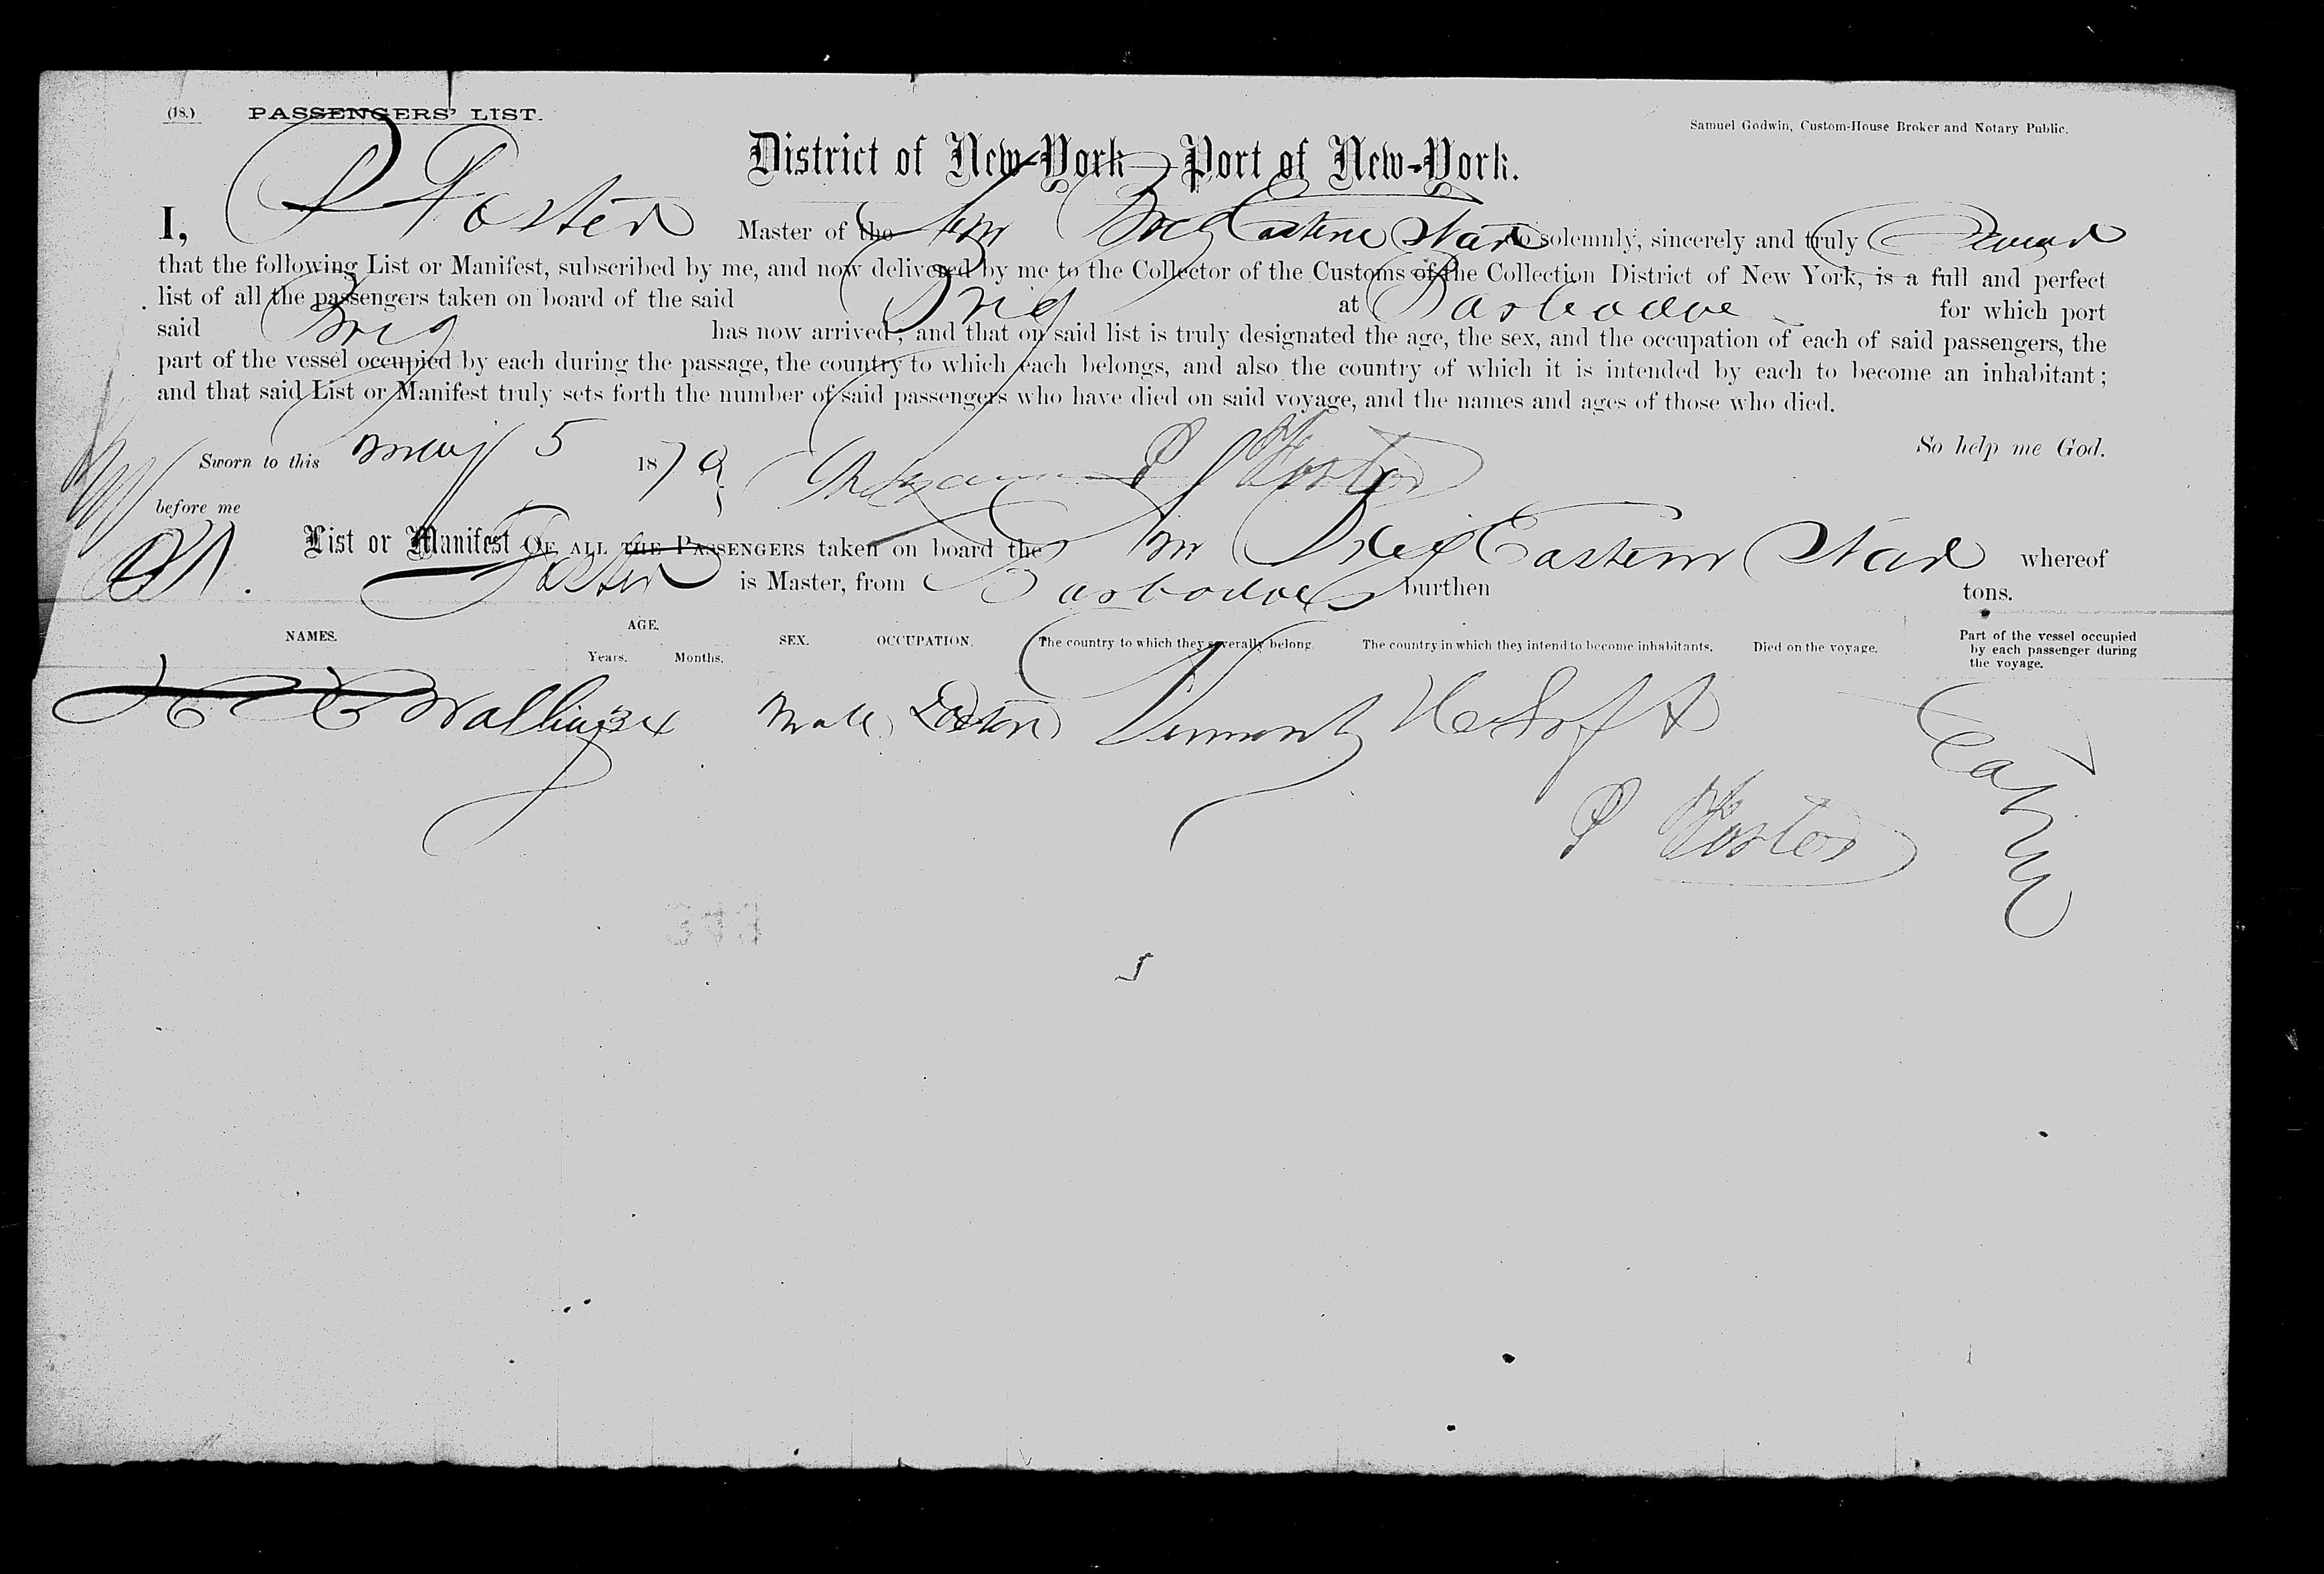 (18.) PASSENGERS' LIST.
Samuel Godwin, Custom-House Broker and Notary Public.
District of New-York Port of New-York.
I, P Foster Master of the Am Brig Eastern Star do solemnly, sincerely and truly Swear
that the following List or Manifest, subscribed by me, and now delivered by me to the Collector of the Customs of the Collection District of New York, is a full and perfect
list of all the passengers taken on board of the said Brig at Barbadoes for which port
said Brig has now arrived; and that on said list is truly designated the age, the sex, and the occupation of each of said passengers, the
part of the vessel occupied by each during the passage, the country to which each belongs, and also the country of which it is intended by each to become an inhabitant;
and that said List or Manifest truly sets forth the number of said passengers who have died on said voyage, and the names and ages of those who died.
So help me God.
Sworn to this May 5 1879 P Foster
before me
List or Manifest OF ALL THE PASSENGERS taken on board the Am Brig Eastern Star whereof
Foster is Master, from Barbadoes burthen tons.
NAMES. AGE. Years. Months. SEX. OCCUPATION. The country to which they severally belong. The country in which they intend to become inhabitants. Died on the voyage. Part of the vessel occupied by each passenger during the voyage.
34 Male Vermont U S of A Cabin
P Foster